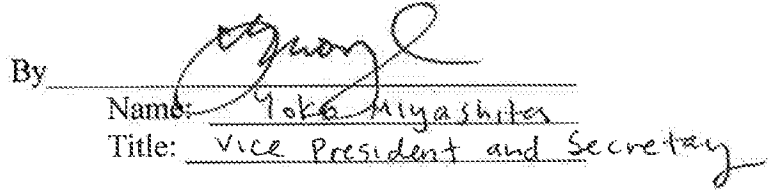 By
Name: Yoko Miyashita
Title: Vice President and Secretary